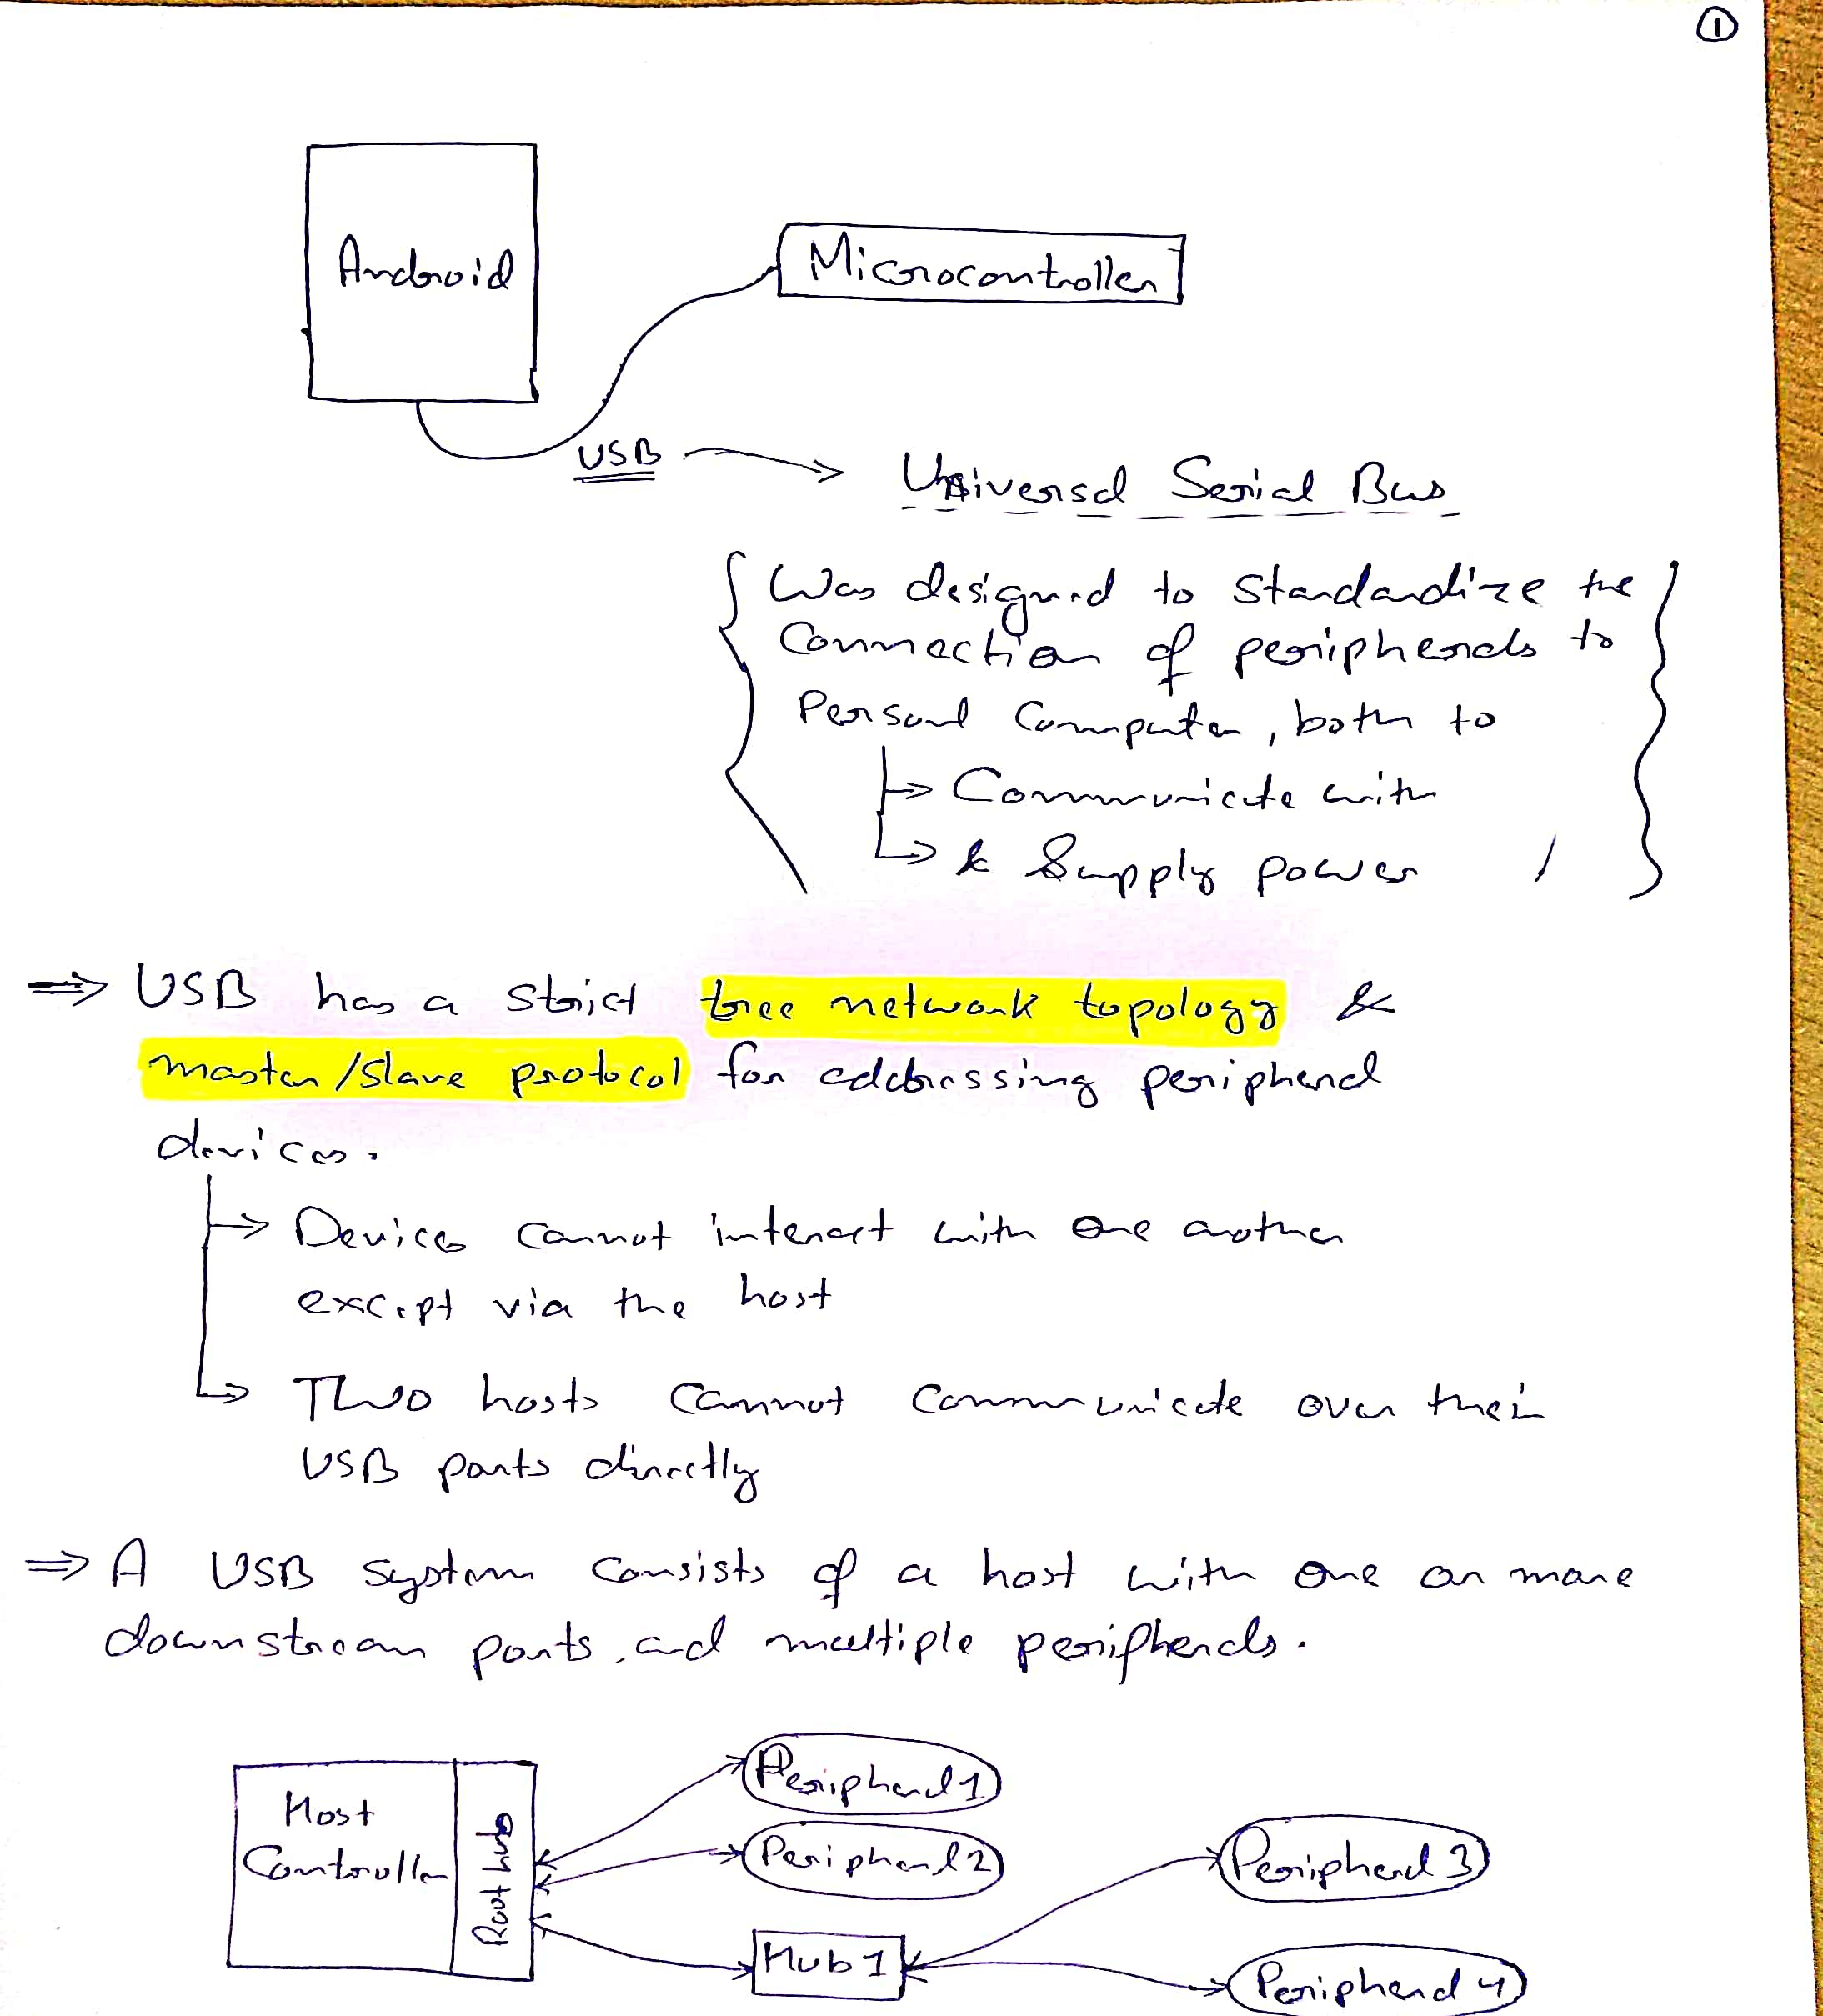 ①
Android
Microcontroller
USB → Universal Serial Bus
Was designed to standardize the
connection of peripherals to
Personal Computer, both to
→ Communicate with
→ & Supply power
⇒ USB has a strict tree network topology &
master/slave protocol for addressing peripheral
devices.
→ Devices cannot interact with one another
except via the host
→ Two hosts cannot communicate over their
USB ports directly
⇒ A USB system consists of a host with one or more
downstream ports, and multiple peripherals.
Host
Controller
Root hub
Peripheral 1
Peripheral 2
Hub 1
Peripheral 3
Peripheral 4